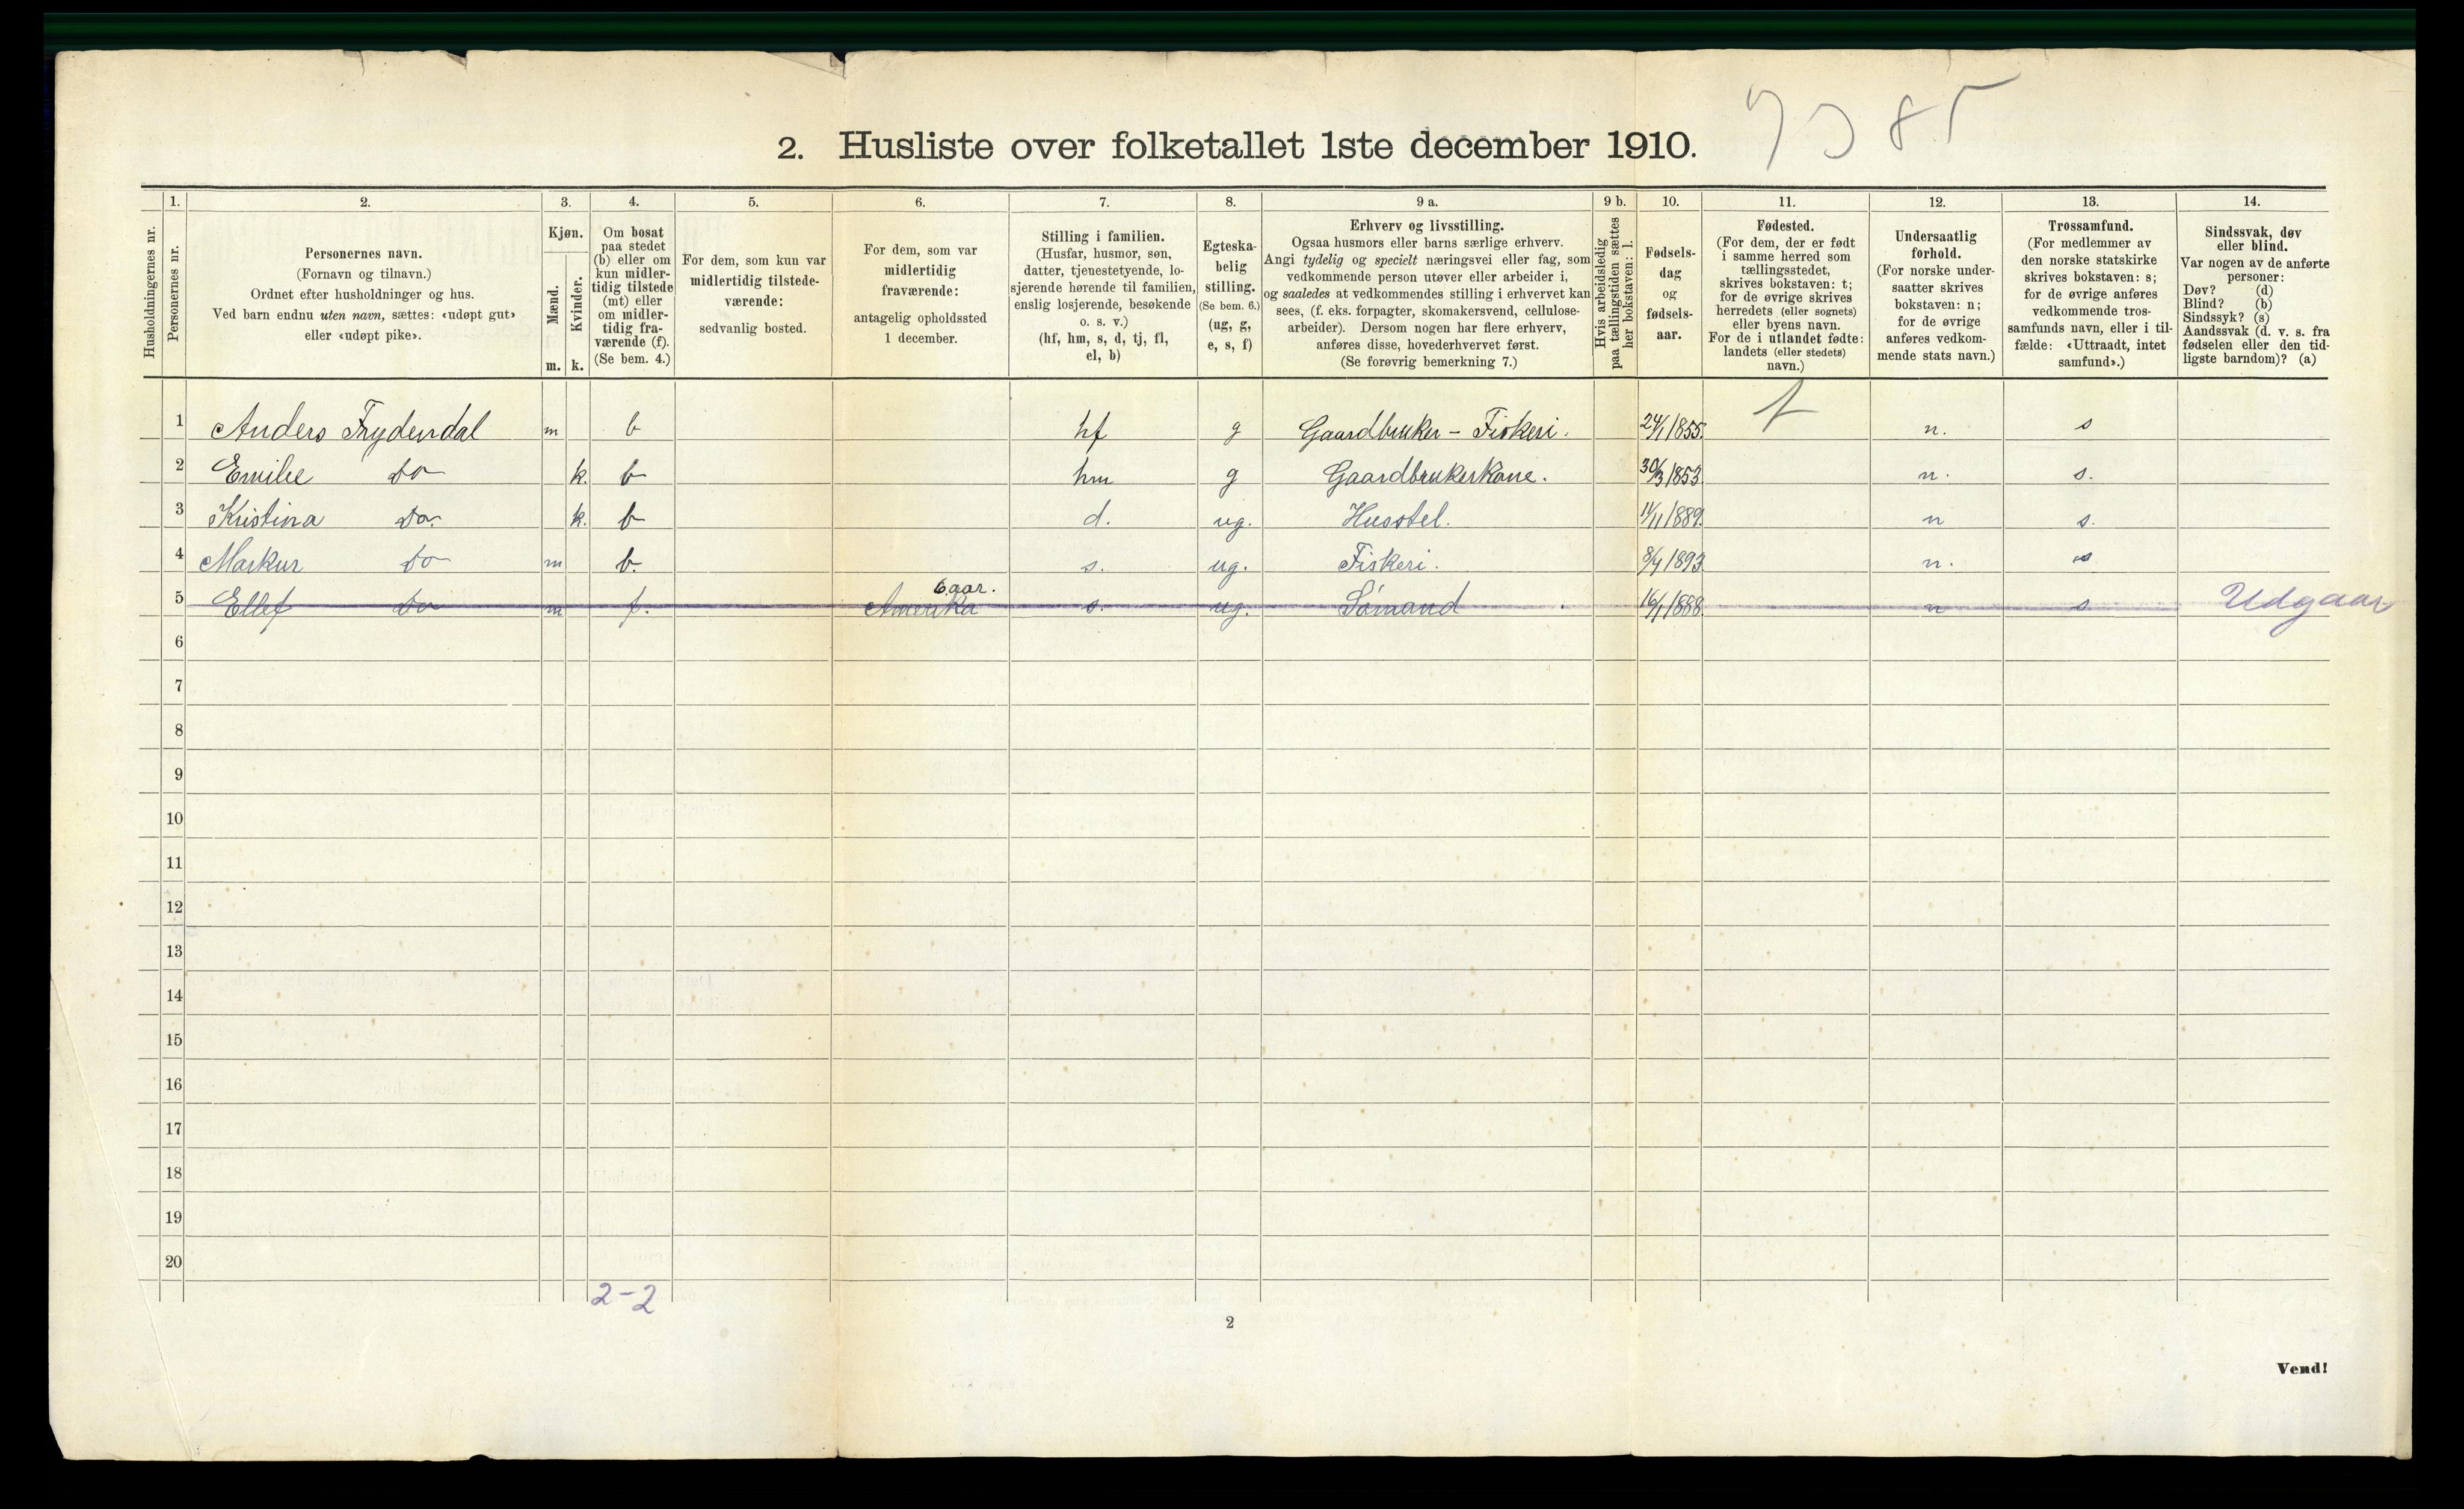 2. Husliste over folketallet 1ste december 1910.
Husholdningernes nr.
1. Personernes nr.
2. Personernes navn.
(Fornavn og tilnavn.)
Ordnet efter husholdninger og hus.
Ved barn endnu uten navn, sættes: «udøpt gut»
eller «udøpt pike».
3. Kjøn.
Mænd. m.
Kvinder. k.
4. Om bosat
paa stedet
(b) eller om
kun midler-
tidig tilstede
(mt) eller
om midler-
tidig fra-
værende (f).
(Se bem. 4.)
5. For dem, som kun var
midlertidig tilstede-
værende:
sedvanlig bosted.
6. For dem, som var
midlertidig
fraværende:
antagelig opholdssted
1 december.
7. Stilling i familien.
(Husfar, husmor, søn,
datter, tjenestetyende, lo-
sjerende hørende til familien,
enslig losjerende, besøkende
o. s. v.)
(hf, hm, s, d, tj, fl,
el, b)
8. Egteska-
belig
stilling.
(Se bem. 6.)
(ug, g,
e, s, f)
9 a. Erhverv og livsstilling.
Ogsaa husmors eller barns særlige erhverv.
Angi tydelig og specielt næringsvei eller fag, som
vedkommende person utøver eller arbeider i,
og saaledes at vedkommendes stilling i erhvervet kan
sees, (f. eks. forpagter, skomakersvend, cellulose-
arbeider). Dersom nogen har flere erhverv,
anføres disse, hovederhvervet først.
(Se forøvrig bemerkning 7.)
9 b. Hvis arbeidsledig
paa tællingstiden sættes
her bokstaven: l.
10. Fødsels-
dag
og
fødsels-
aar.
11. Fødested.
(For dem, der er født
i samme herred som
tællingsstedet,
skrives bokstaven: t;
for de øvrige skrives
herredets (eller sognets)
eller byens navn.
For de i utlandet fødte:
landets (eller stedets)
navn.)
12. Undersaatlig
forhold.
(For norske under-
saatter skrives
bokstaven: n;
for de øvrige
anføres vedkom-
mende stats navn.)
13. Trossamfund.
(For medlemmer av
den norske statskirke
skrives bokstaven: s;
for de øvrige anføres
vedkommende tros-
samfunds navn, eller i til-
fælde: «Uttraadt, intet
samfund».)
14. Sindssvak, døv
eller blind.
Var nogen av de anførte
personer:
Døv? (d)
Blind? (b)
Sindssyk? (s)
Aandssvak (d. v. s. fra
fødselen eller den tid-
ligste barndom)? (a)
1 Anders Frydendal m b hf g Gaardbruker - Fiskeri. 24/1 1855. t n. s
2 Emilie Do k. b hm g Gaardbrukerkone. 30/3 1853 n. s.
3 Kristina Do. k. b d. ug. Husstel. 11/11 1889. n s.
4 Markus Do m b. s. ug. Fiskeri. 8/4 1893 n. s
5 Ellef Do m f. Amerika 6 aar. s. ug. Sømand 16/1 1888. n s Udgaar
6
7
8
9
10
11
12
13
14
15
16
17
18
19
20
2-2
2
Vend!